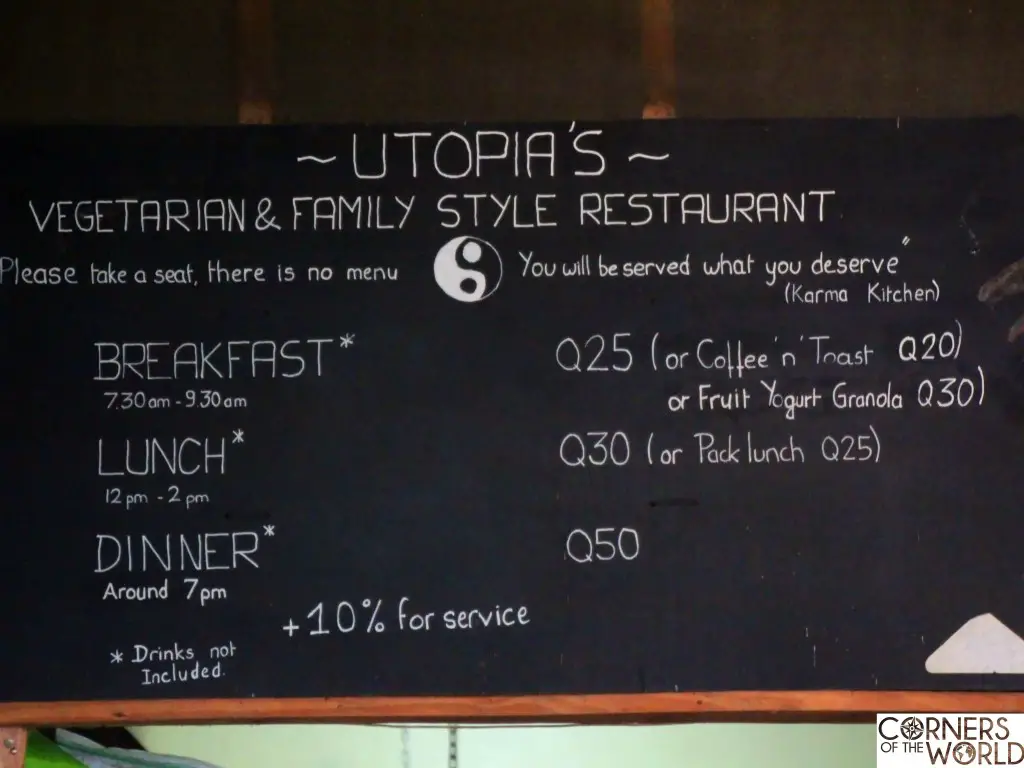 ~ UTOPIA'S ~
VEGETARIAN & FAMILY STYLE RESTAURANT
Please take a seat, there is no menu
You will be served what you deserve"
(Karma Kitchen)
BREAKFAST* Q25 (or Coffee 'n' Toast Q20)
7.30am - 9.30am or Fruit Yogurt Granola Q30)
LUNCH* Q30 (or Pack lunch Q25)
12pm - 2pm
DINNER* Q50
Around 7pm
+10% for service
* Drinks not
Included.
CORNERS
OF THE WORLD